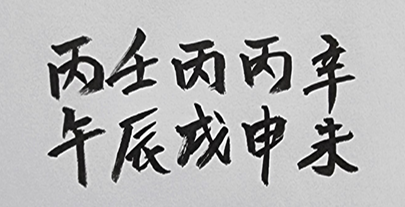 丙壬丙丙辛
午辰戌申未